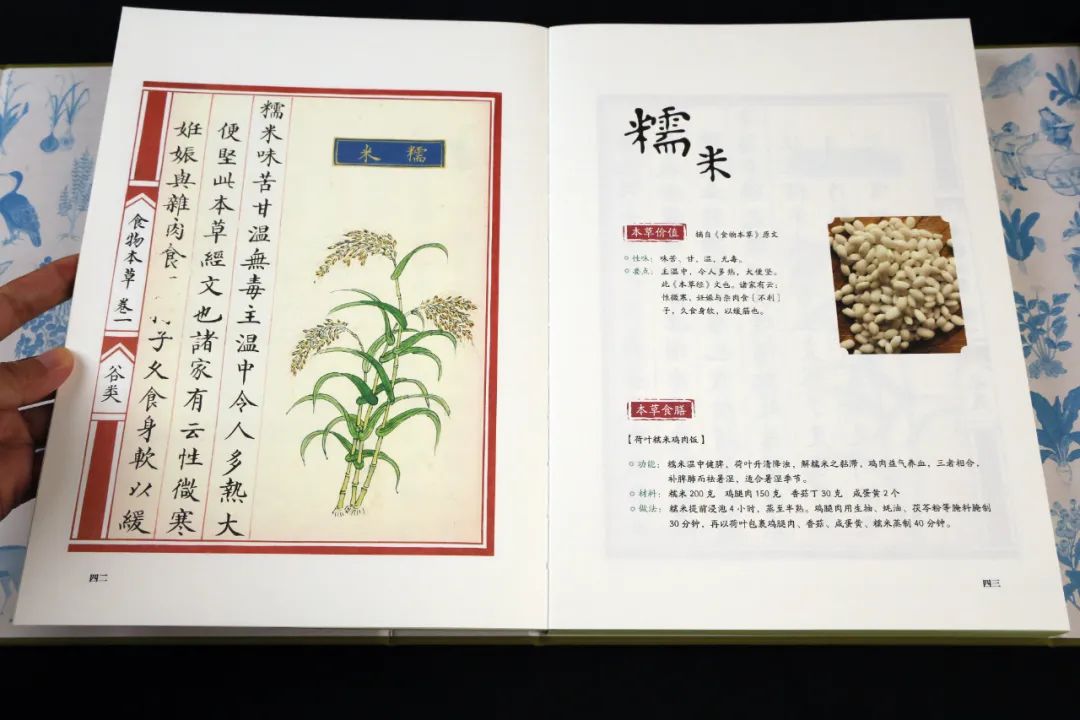 糯米
糯米味苦甘温無毒主温中令人多熱大
便堅此本草經文也諸家有云性微寒
妊娠與雜肉食
子久食身軟以緩
食物本草 卷一
谷类
四二
糯米
本草价值 摘自《食物本草》原文
性味：味苦、甘，温，无毒。
要点：主温中，令人多热，大便坚。
此《本草经》文也。诸家有云：
性微寒，妊娠与杂肉食［不利］
子，久食身软，以缓筋也。
本草食膳
【荷叶糯米鸡肉饭】
功能：糯米温中健脾，荷叶升清降浊，解糯米之黏滞，鸡肉益气养血，三者相合，
补脾肺而祛暑湿，适合暑湿季节。
材料：糯米 200 克 鸡腿肉 150 克 香菇丁 30 克 咸蛋黄 2 个
做法：糯米提前浸泡 4 小时，蒸至半熟。鸡腿肉用生抽、蚝油、茯苓粉等腌料腌制
30 分钟，再以荷叶包裹鸡腿肉、香菇、咸蛋黄、糯米蒸制 40 分钟。
四三